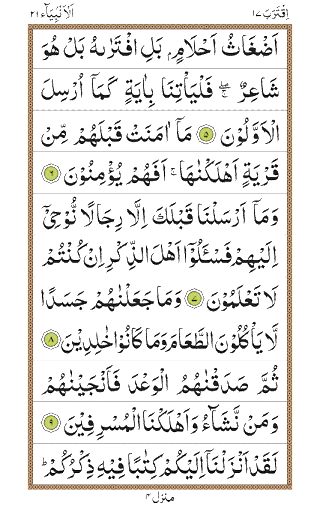 اِقْتَرَبَ ١٧ اَلْاَنْۢبِيَآء ٢١
اَضْغَاثُ اَحْلَامٍۭ بَلِ افْتَرٰىهُ بَلْ هُوَ
شَاعِرٌ ۖۚ فَلْيَاْتِنَا بِاٰيَةٍ كَمَاۤ اُرْسِلَ
الْاَوَّلُوْنَ ٥ مَاۤ اٰمَنَتْ قَبْلَهُمْ مِّنْ
قَرْيَةٍ اَهْلَكْنٰهَا ۚ اَفَهُمْ يُؤْمِنُوْنَ ٦
وَمَاۤ اَرْسَلْنَا قَبْلَكَ اِلَّا رِجَالًا نُّوْحِيْۤ
اِلَيْهِمْ فَسْـَٔلُوْۤا اَهْلَ الذِّكْرِ اِنْ كُنْتُمْ
لَا تَعْلَمُوْنَ ٧ وَمَا جَعَلْنٰهُمْ جَسَدًا
لَّا يَاْكُلُوْنَ الطَّعَامَ وَمَا كَانُوْا خٰلِدِيْنَ ٨
ثُمَّ صَدَقْنٰهُمُ الْوَعْدَ فَاَنْجَيْنٰهُمْ
وَمَنْ نَّشَآءُ وَاَهْلَكْنَا الْمُسْرِفِيْنَ ٩
لَقَدْ اَنْزَلْنَاۤ اِلَيْكُمْ كِتٰبًا فِيْهِ ذِكْرُكُمْ ؕ
منزل ٤